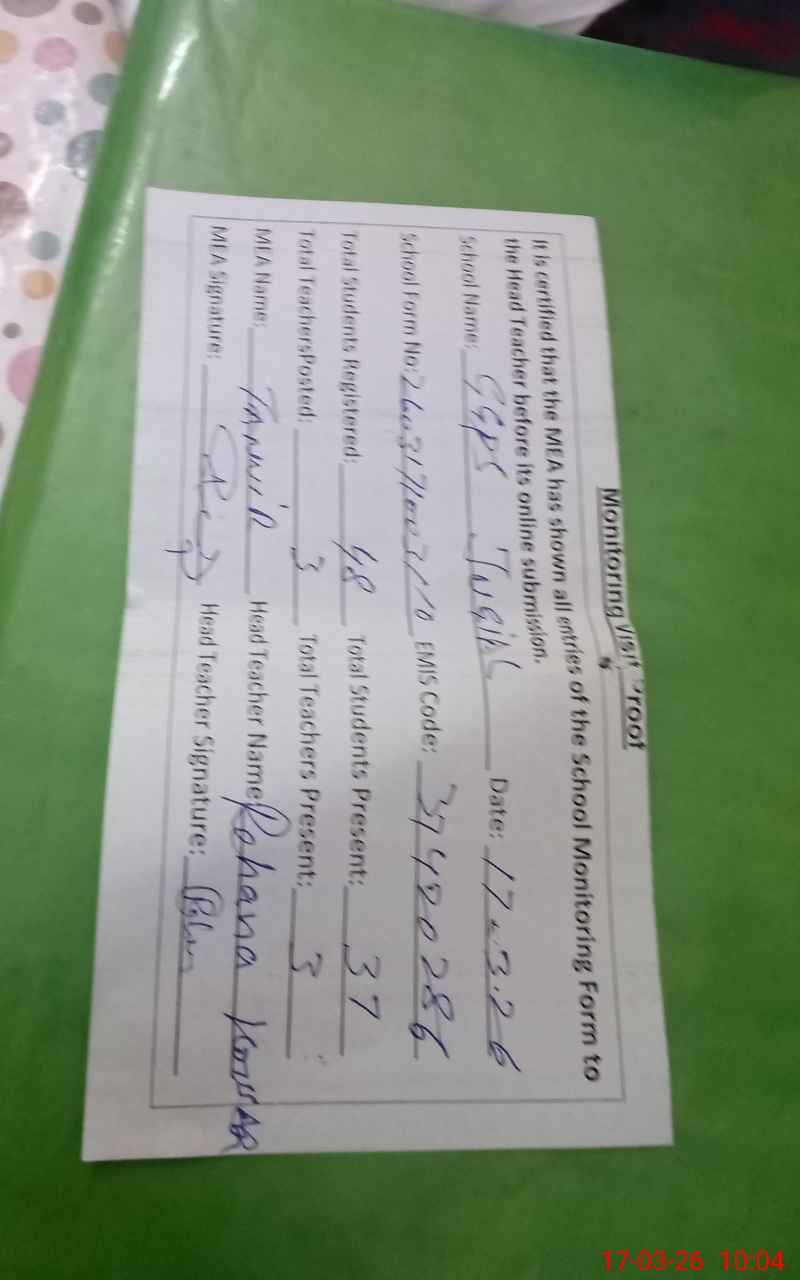 Monitoring Visit Proof
It is certified that the MEA has shown all entries of the School Monitoring Form to
the Head Teacher before its online submission.
School Name: GGPS Date: 17.3.26
School Form No: EMIS Code: 37420286
Total Students Registered: 48 Total Students Present: 37
Total TeachersPosted: 3 Total Teachers Present: 3
MEA Name: Head Teacher Name: Rohana Kousar
MEA Signature: Head Teacher Signature:
17-03-26 10:04